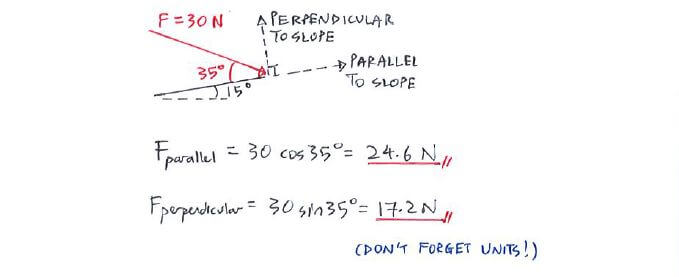 F = 30 N
PERPENDICULAR
TO SLOPE
35°
I
PARALLEL
TO SLOPE
15°
Fparallel = 30 cos 35° = 24.6 N //
Fperpendicular = 30 sin 35° = 17.2 N //
(DON'T FORGET UNITS!)